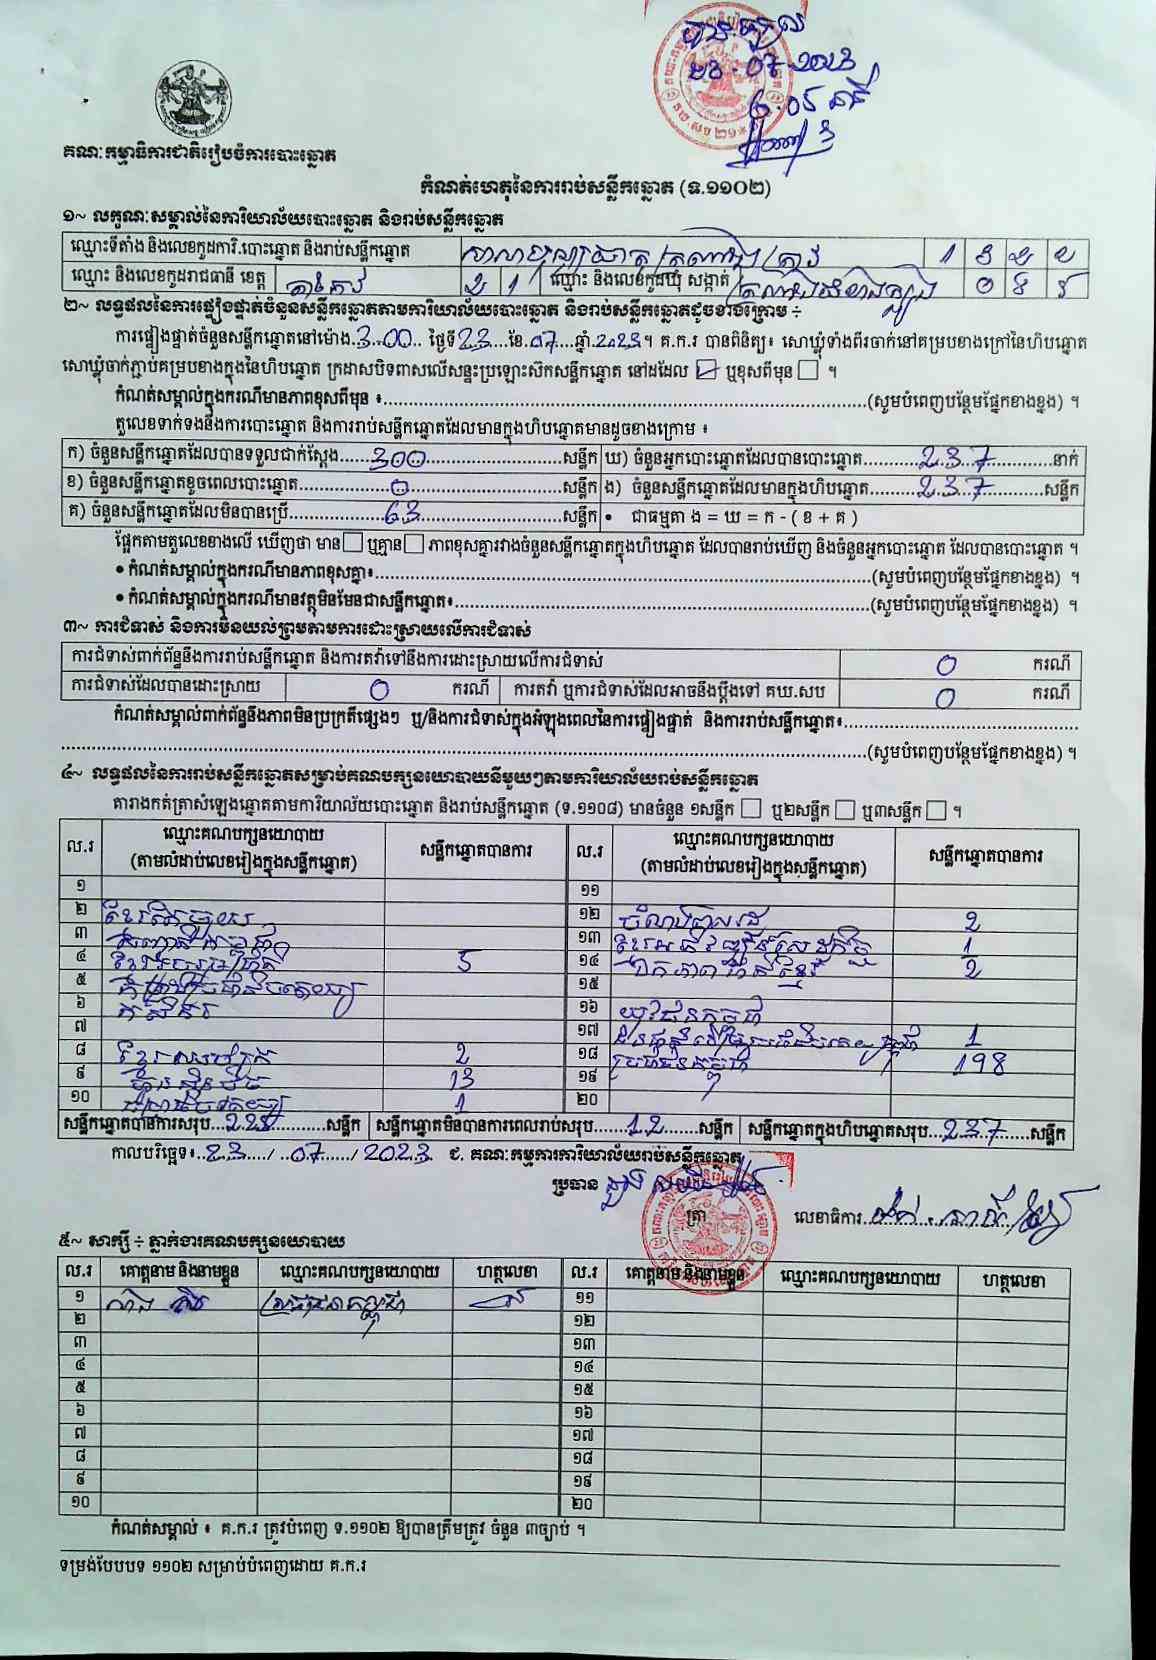 23.07.2023
គណៈកម្មាធិការជាតិរៀបចំការបោះឆ្នោត
កំណត់ហេតុនៃការរាប់សន្លឹកឆ្នោត (ទ.១១០២)
១~ លក្ខណៈសម្គាល់នៃការិយាល័យបោះឆ្នោត និងរាប់សន្លឹកឆ្នោត
ឈ្មោះទីតាំង និងលេខកូដការិ.បោះឆ្នោត និងរាប់សន្លឹកឆ្នោត
ឈ្មោះ និងលេខកូដរាជធានី ខេត្ត តាកែវ 2 1 ឈ្មោះ និងលេខកូដឃុំ សង្កាត់
២~ លទ្ធផលនៃការផ្ទៀងផ្ទាត់ចំនួនសន្លឹកឆ្នោតតាមការិយាល័យបោះឆ្នោត និងរាប់សន្លឹកឆ្នោតដូចខាងក្រោម ÷
ការផ្ទៀងផ្ទាត់ចំនួនសន្លឹកឆ្នោតនៅម៉ោង.3.00.. ថ្ងៃទី.23....ខែ.07....ឆ្នាំ.2023.។ គ.ក.រ បានពិនិត្យ៖ សោឃ្លុំទាំងពីរចាក់នៅគម្របខាងក្រៅនៃហិបឆ្នោត
សោឃ្លុំចាក់ភ្ជាប់គម្របខាងក្នុងនៃហិបឆ្នោត ក្រដាសបិទពាសលើសន្ទះប្រឡោះស៊កសន្លឹកឆ្នោត នៅដដែល ☑ ឬខុសពីមុន ☐ ។
កំណត់សម្គាល់ក្នុងករណីមានភាពខុសពីមុន ៖........(សូមបំពេញបន្ថែមផ្នែកខាងខ្នង) ។
តួលេខទាក់ទងនឹងការបោះឆ្នោត និងការរាប់សន្លឹកឆ្នោតដែលមានក្នុងហិបឆ្នោតមានដូចខាងក្រោម ៖
ក) ចំនួនសន្លឹកឆ្នោតដែលបានទទួលជាក់ស្តែង......300......សន្លឹក ឃ) ចំនួនអ្នកបោះឆ្នោតដែលបានបោះឆ្នោត......237......នាក់
ខ) ចំនួនសន្លឹកឆ្នោតខូចពេលបោះឆ្នោត......0......សន្លឹក ង) ចំនួនសន្លឹកឆ្នោតដែលមានក្នុងហិបឆ្នោត......237......សន្លឹក
គ) ចំនួនសន្លឹកឆ្នោតដែលមិនបានប្រើ......63......សន្លឹក • ជាធម្មតា ង = ឃ = ក - ( ខ + គ )
ផ្អែកតាមតួលេខខាងលើ ឃើញថា មាន ☐ ឬគ្មាន ☐ ភាពខុសគ្នារវាងចំនួនសន្លឹកឆ្នោតក្នុងហិបឆ្នោត ដែលបានរាប់ឃើញ និងចំនួនអ្នកបោះឆ្នោត ដែលបានបោះឆ្នោត ។
• កំណត់សម្គាល់ក្នុងករណីមានភាពខុសគ្នា៖........(សូមបំពេញបន្ថែមផ្នែកខាងខ្នង) ។
• កំណត់សម្គាល់ក្នុងករណីមានវត្ថុមិនមែនជាសន្លឹកឆ្នោត៖........(សូមបំពេញបន្ថែមផ្នែកខាងខ្នង) ។
៣~ ការជំទាស់ និងការមិនយល់ព្រមតាមការដោះស្រាយលើការជំទាស់
ការជំទាស់ពាក់ព័ន្ធនឹងការរាប់សន្លឹកឆ្នោត និងការតវ៉ាទៅនឹងការដោះស្រាយលើការជំទាស់ 0 ករណី
ការជំទាស់ដែលបានដោះស្រាយ 0 ករណី ការតវ៉ា ឬការជំទាស់ដែលអាចនឹងប្តឹងទៅ គឃ.សប 0 ករណី
កំណត់សម្គាល់ពាក់ព័ន្ធនឹងភាពមិនប្រក្រតីផ្សេងៗ ឬ/និងការជំទាស់ក្នុងអំឡុងពេលនៃការផ្ទៀងផ្ទាត់ និងការរាប់សន្លឹកឆ្នោត៖........
........(សូមបំពេញបន្ថែមផ្នែកខាងខ្នង) ។
៤~ លទ្ធផលនៃការរាប់សន្លឹកឆ្នោតសម្រាប់គណបក្សនយោបាយនីមួយៗតាមការិយាល័យរាប់សន្លឹកឆ្នោត
តារាងកត់ត្រាសំឡេងឆ្នោតតាមការិយាល័យបោះឆ្នោត និងរាប់សន្លឹកឆ្នោត (ទ.១១០៨) មានចំនួន ១សន្លឹក ☐ ឬ២សន្លឹក ☐ ឬ៣សន្លឹក ☐ ។
ល.រ ឈ្មោះគណបក្សនយោបាយ (តាមលំដាប់លេខរៀងក្នុងសន្លឹកឆ្នោត) សន្លឹកឆ្នោតបានការ ល.រ ឈ្មោះគណបក្សនយោបាយ (តាមលំដាប់លេខរៀងក្នុងសន្លឹកឆ្នោត) សន្លឹកឆ្នោតបានការ
១ ១១
២ ១២ 2
៣ ១៣ 1
៤ 5 ១៤ 2
៥ ១៥
៦ ១៦ យុវជនកម្ពុជា
៧ ១៧ 1
៨ 2 ១៨ ប្រជាជនកម្ពុជា 198
៩ 13 ១៩
១០ 1 ២០
សន្លឹកឆ្នោតបានការសរុប...225......សន្លឹក សន្លឹកឆ្នោតមិនបានការពេលរាប់សរុប......12......សន្លឹក សន្លឹកឆ្នោតក្នុងហិបឆ្នោតសរុប...237....សន្លឹក
កាលបរិច្ឆេទ៖..23..../..07..../2023 ជ. គណៈកម្មការការិយាល័យរាប់សន្លឹកឆ្នោត
ប្រធាន ត្រា លេខាធិការ
៥~ សាក្សី ÷ ភ្នាក់ងារគណបក្សនយោបាយ
ល.រ គោត្តនាម និងនាមខ្លួន ឈ្មោះគណបក្សនយោបាយ ហត្ថលេខា ល.រ គោត្តនាម និងនាមខ្លួន ឈ្មោះគណបក្សនយោបាយ ហត្ថលេខា
១ ប្រជាជនកម្ពុជា ១១
២ ១២
៣ ១៣
៤ ១៤
៥ ១៥
៦ ១៦
៧ ១៧
៨ ១៨
៩ ១៩
១០ ២០
កំណត់សម្គាល់ ៖ គ.ក.រ ត្រូវបំពេញ ទ.១១០២ ឱ្យបានត្រឹមត្រូវ ចំនួន ៣ច្បាប់ ។
ទម្រង់បែបបទ ១១០២ សម្រាប់បំពេញដោយ គ.ក.រ